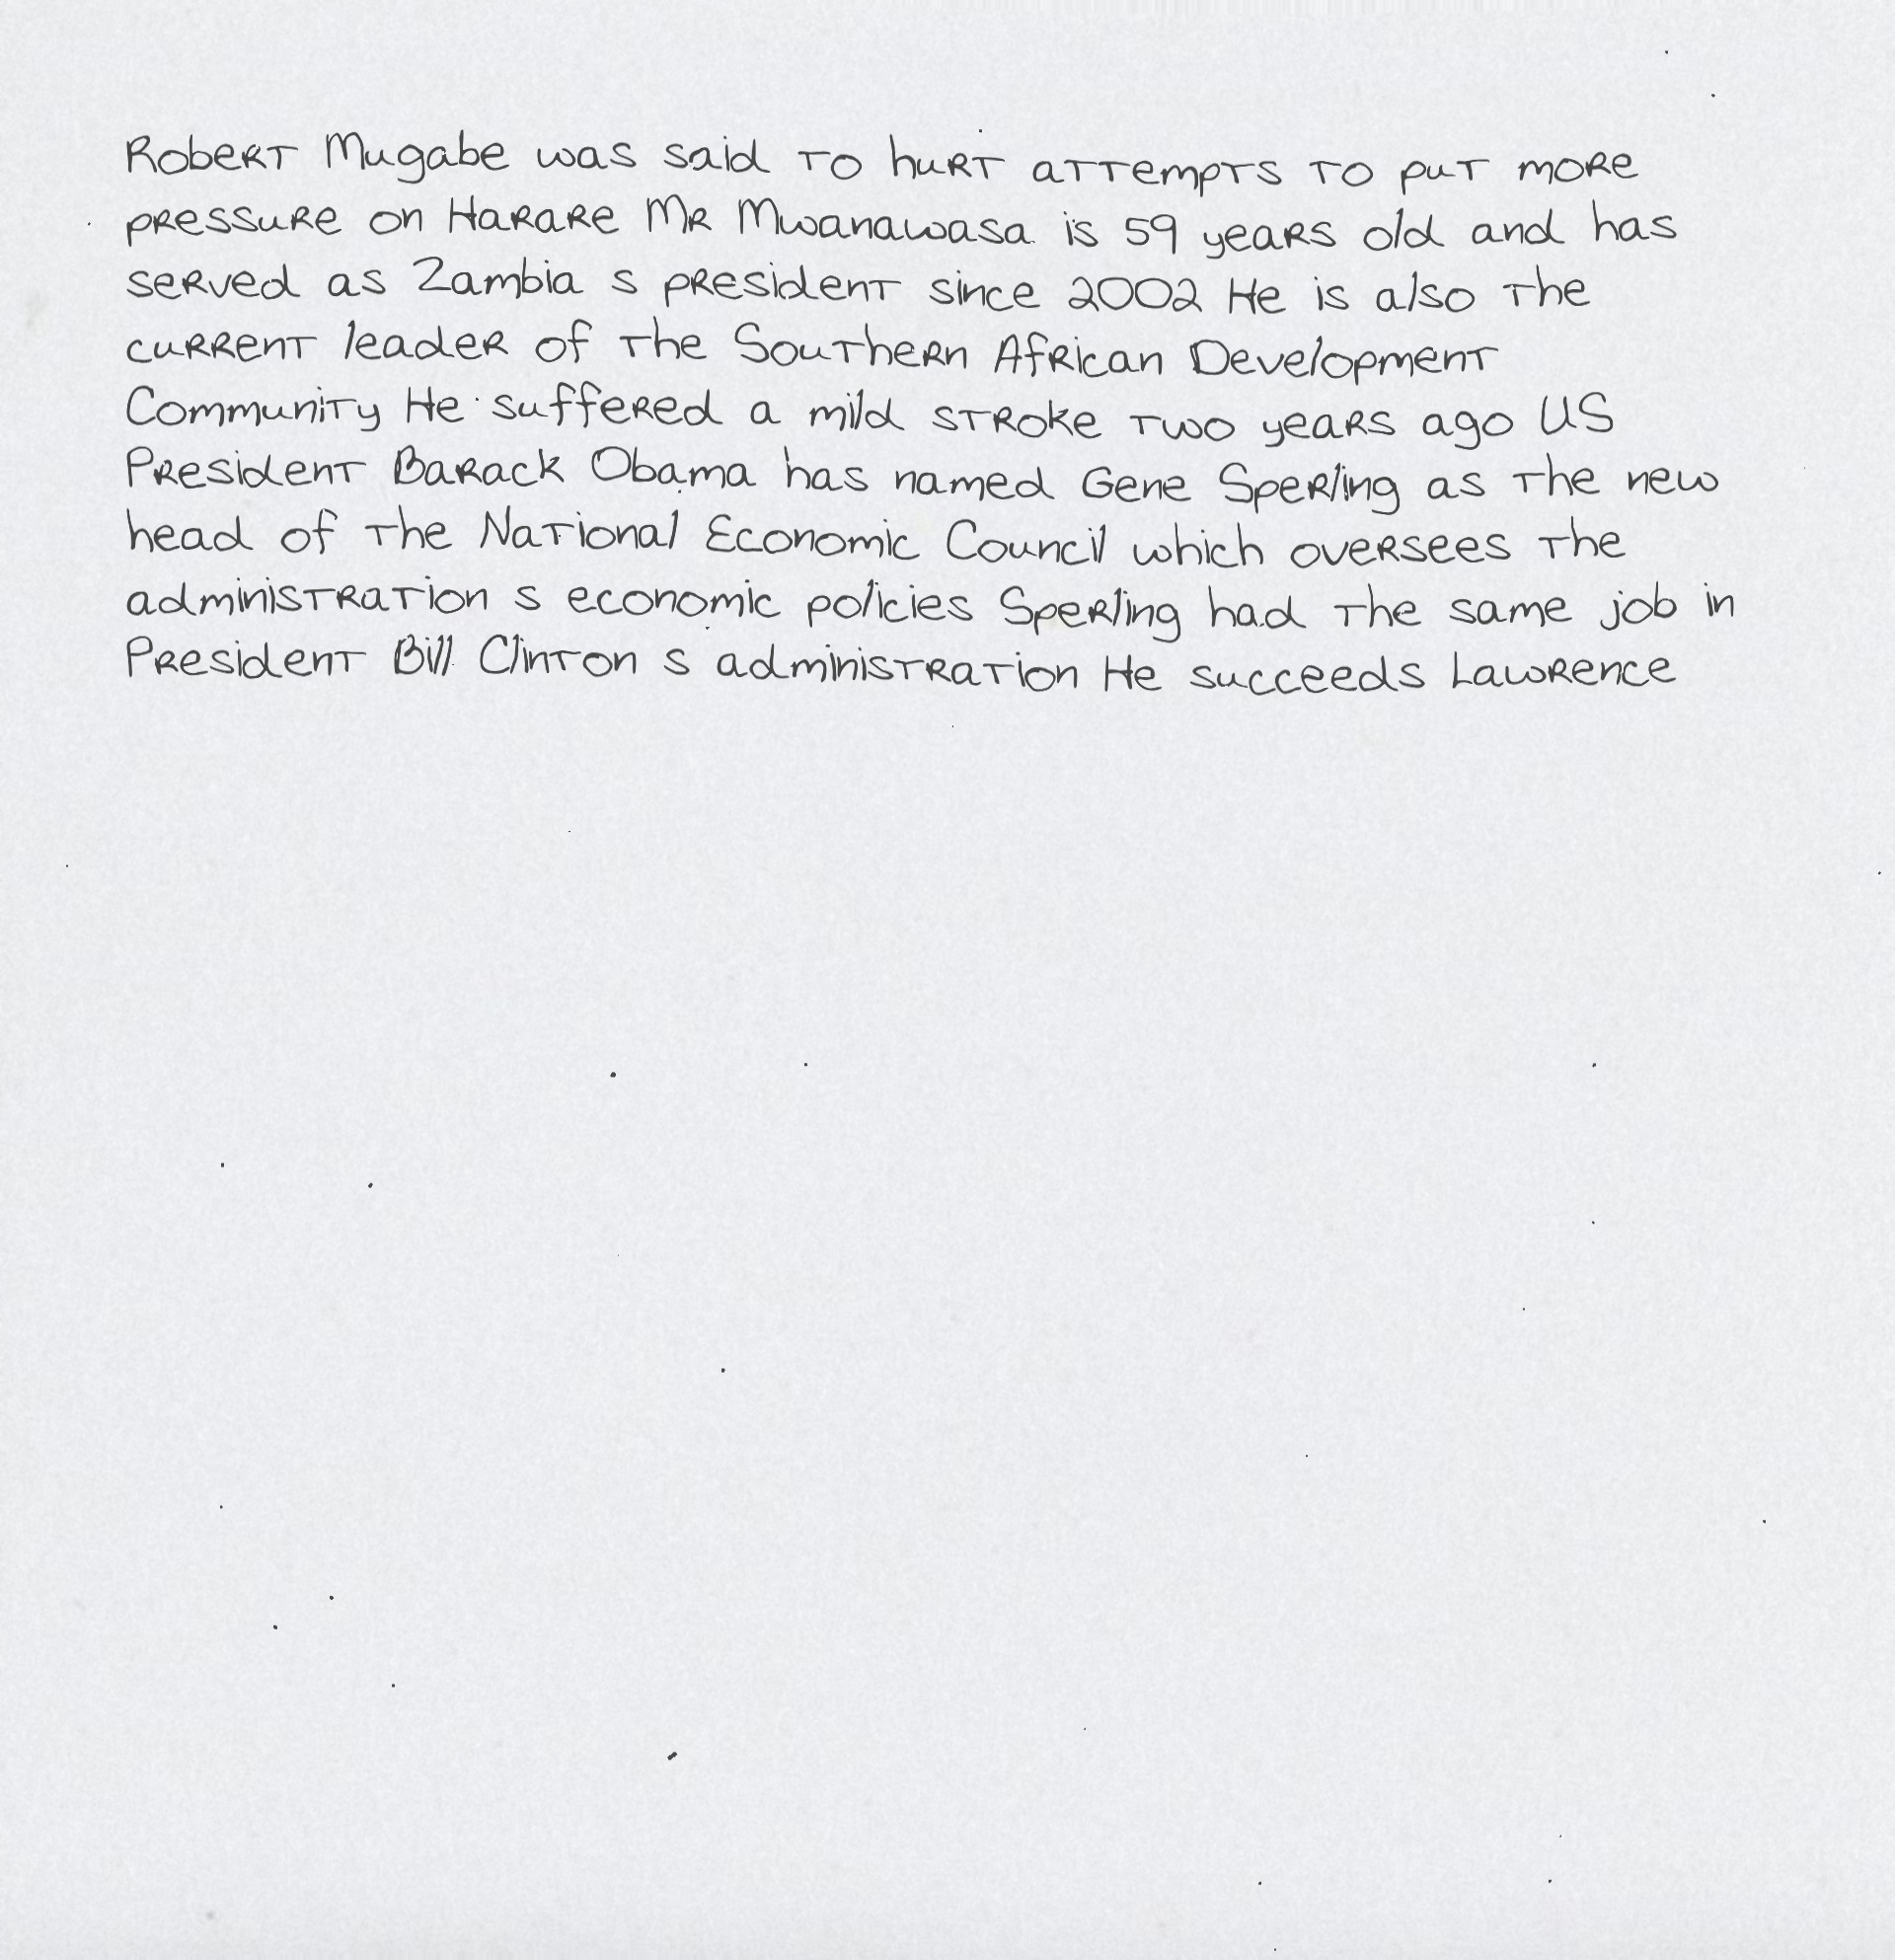 Robert Mugabe was said to hurt attempts to put more
pressure on Harare Mr Mwanawasa is 59 years old and has
served as Zambia s president since 2002 He is also the
current leader of the Southern African Development
Community He suffered a mild stroke two years ago US
President Barack Obama has named Gene Sperling as the new
head of the National Economic Council which oversees the
administration s economic policies Sperling had the same job in
President Bill Clinton s administration He succeeds Lawrence